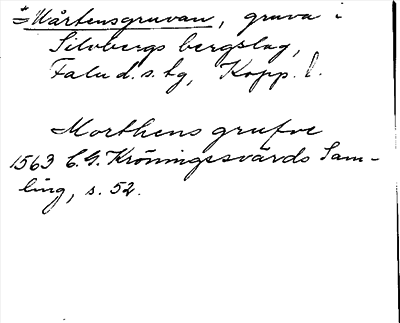 Mårtensgruvan, gruva i
Silvbergs bergslag,
Falu d.s. tg, Kopp. l.
Morthens grufve
1563 C.G. Kröningssvärds Sam-
ling, s. 52.